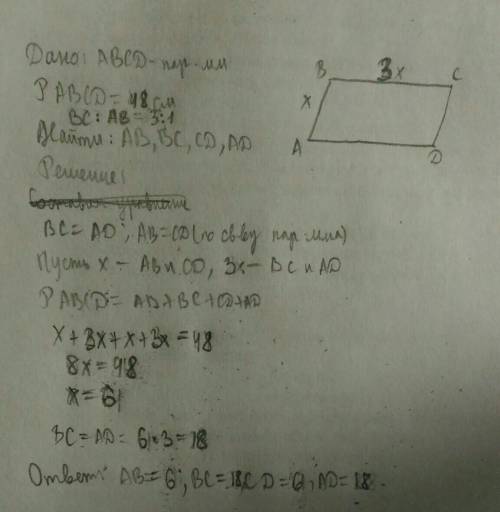 Дано: ABCD - пар-мм
P ABCD = 48 см
BC : AB = 3:1
Найти: AB, BC, CD, AD
Решение:
Составим уравнение
BC = AD; AB = CD (по св-ву пар-мма)
Пусть x - AB и CD, 3x - BC и AD
P ABCD = AD + BC + CD + AD
x + 3x + x + 3x = 48
8x = 48
x = 6
BC = AD = 6 · 3 = 18
Ответ: AB = 6; BC = 18, CD = 6; AD = 18.
B 3x C
x
A D